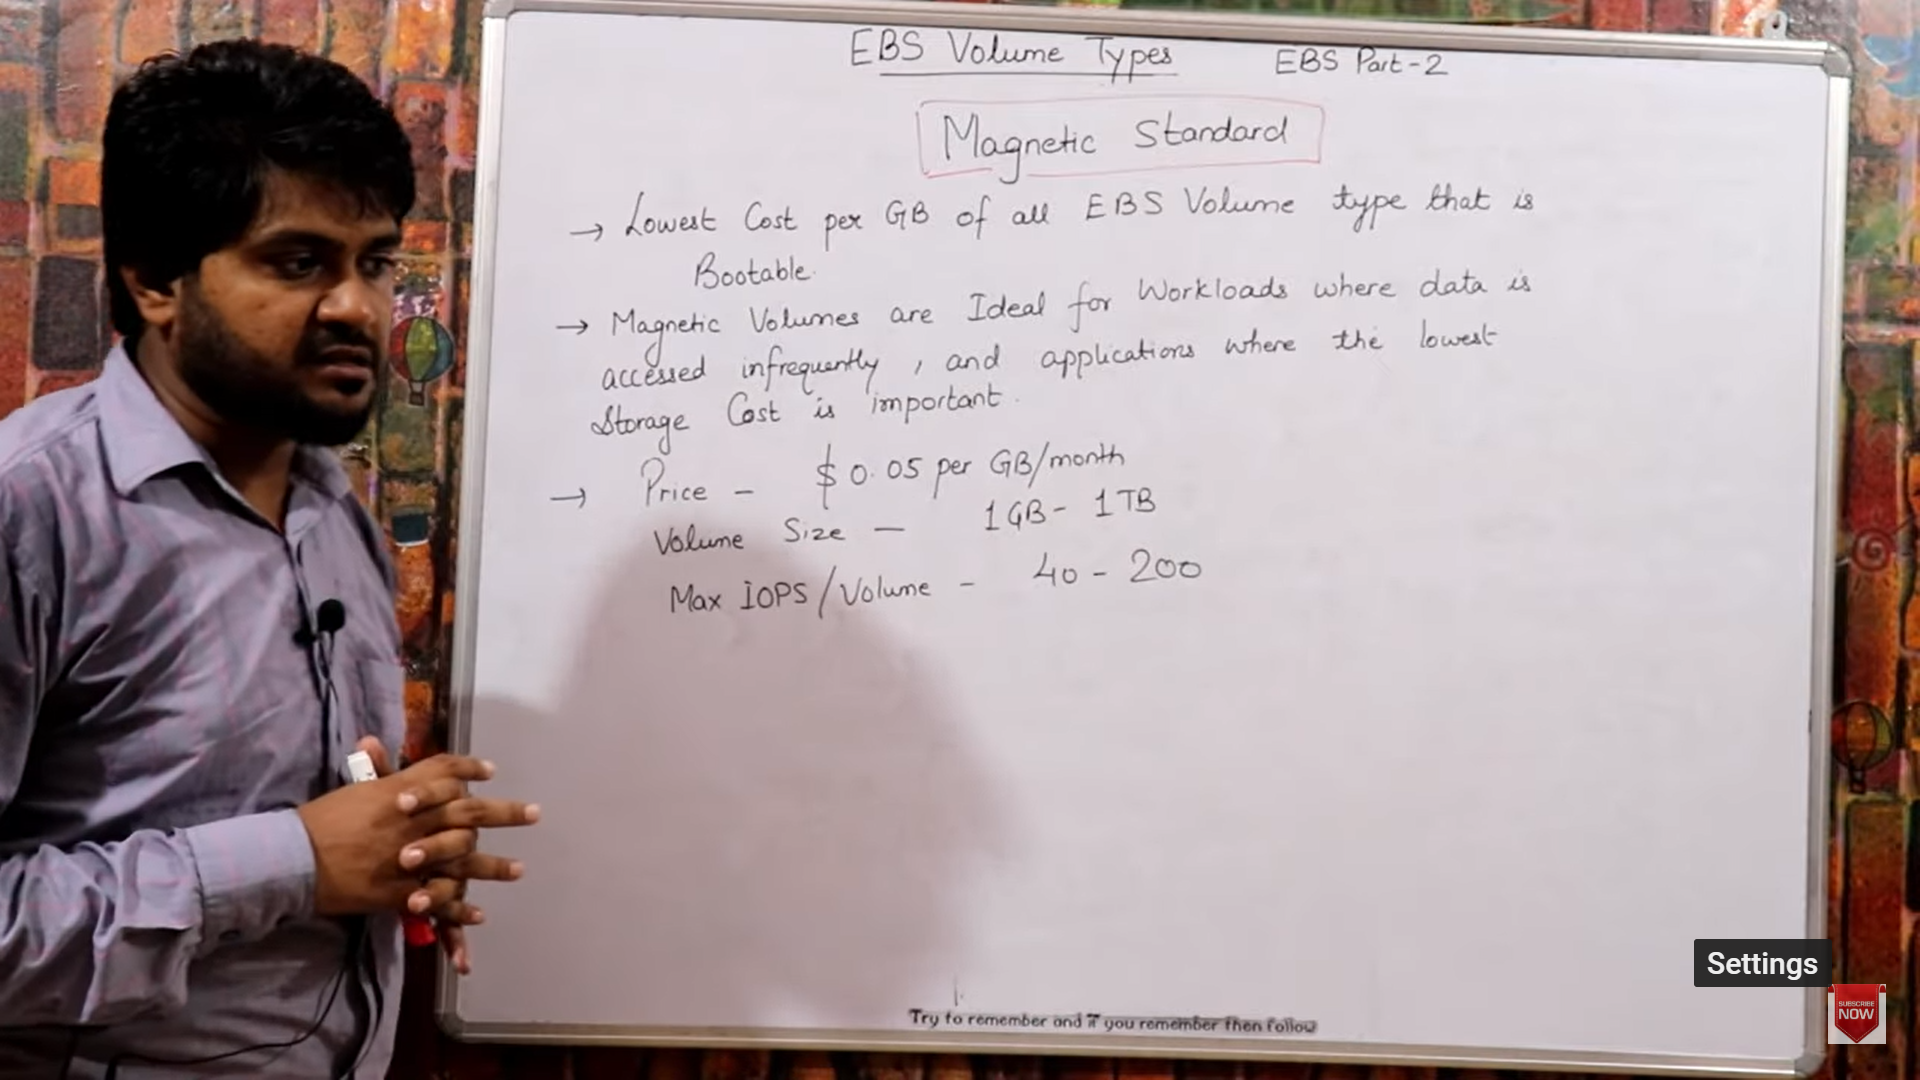 EBS Volume Types EBS Part-2
Magnetic Standard
→ Lowest Cost per GB of all EBS Volume type that is
Bootable.
→ Magnetic Volumes are Ideal for Workloads where data is
accessed infrequently, and applications where the lowest
Storage Cost is important.
→ Price - $ 0.05 per GB/month
Volume Size - 1GB - 1TB
Max IOPS/Volume - 40 - 200
Settings
SUBSCRIBE
NOW
Try to remember and if you remember then follow